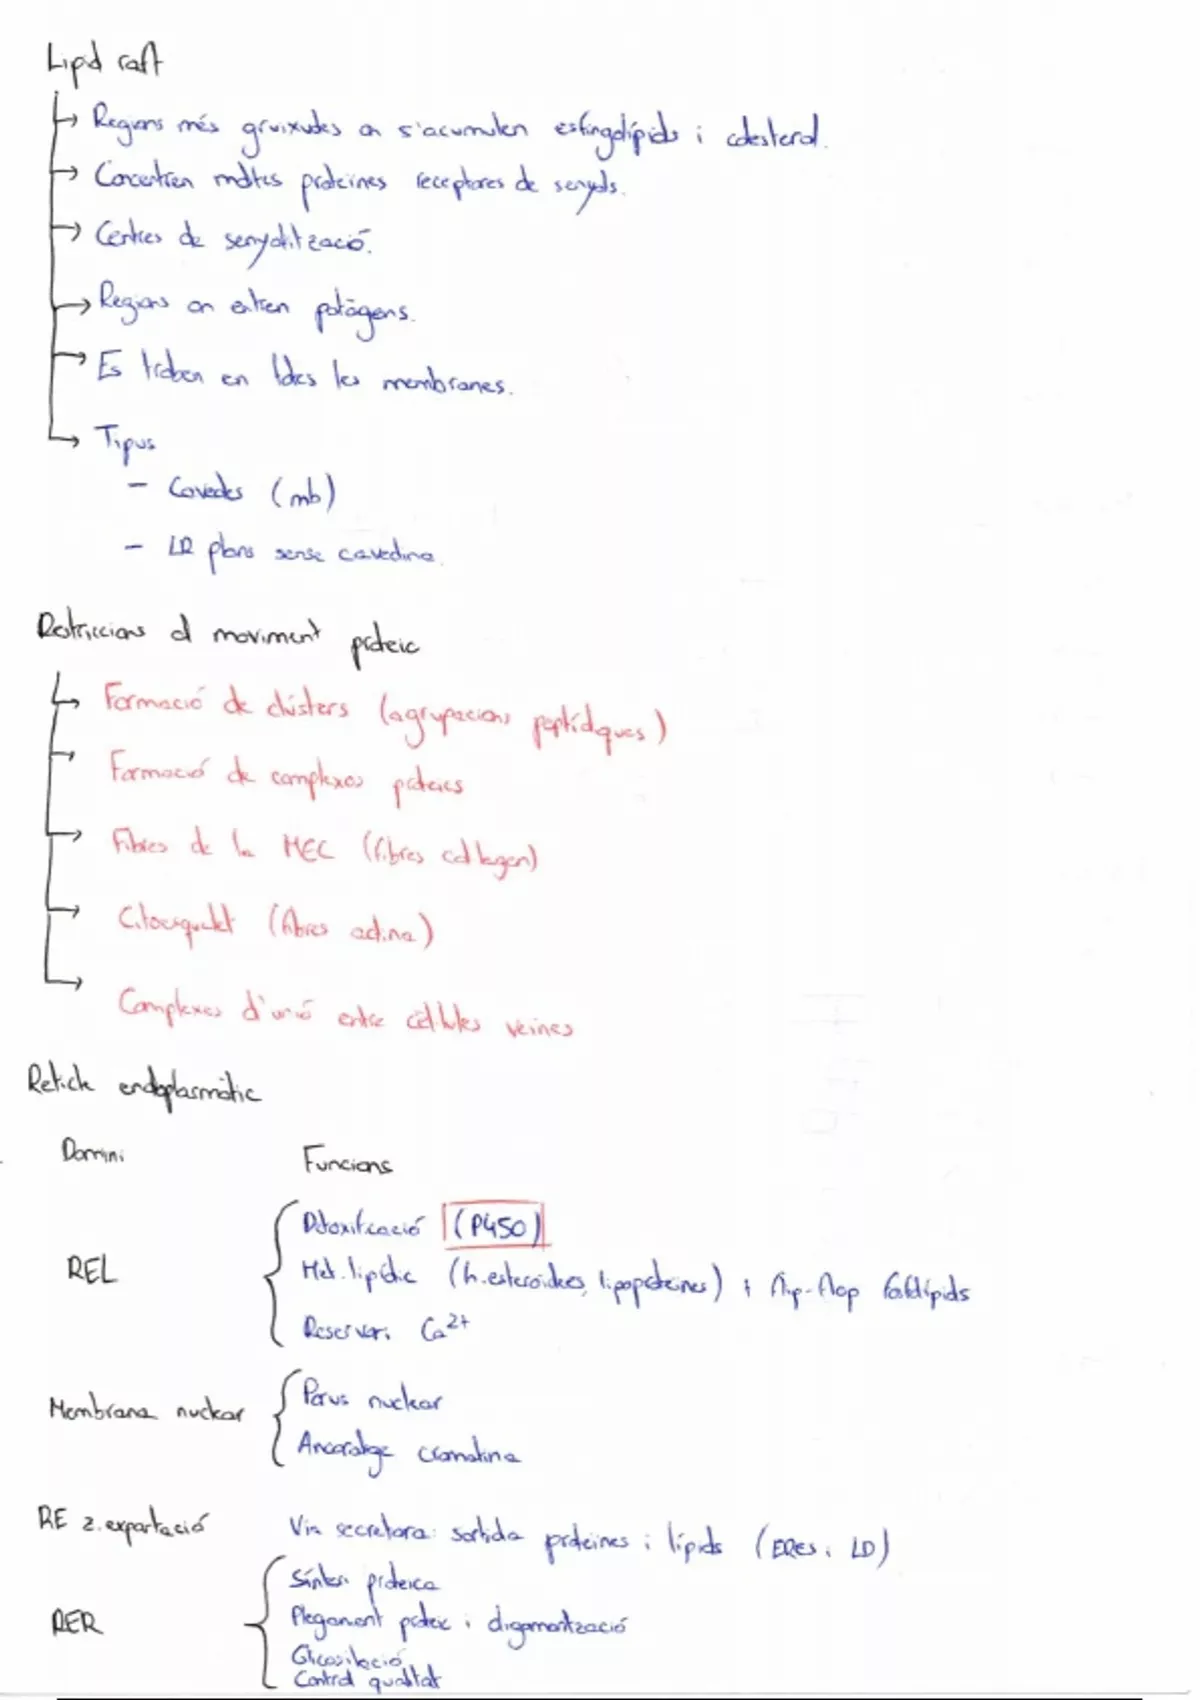 Lipid raft
Regions més gruixudes on s'acumulen esfingolípids i colesterol.
Concentren moltes proteïnes receptores de senyals.
Centres de senyalització.
Regions on entren patògens.
Es troben en totes les membranes.
Tipus
- Caveoles (mb)
- LR plans sense caveolina.
Restriccions al moviment proteic
Formació de clústers (agrupacions peptídiques)
Formació de complexos proteics
Fibres de la MEC (fibres col·lagen)
Citoesquelet (fibres actina)
Complexes d'unió entre cèl·lules veïnes
Reticle endoplasmàtic
Domini Funcions
Detoxificació (P450)
REL Met. lipídic (h. esteroidees, lipoproteïnes) i flip-flop fosfolípids
Reservori Ca2+
Porus nuclear
Membrana nuclear
Ancoratge cromatina
RE z. exportació Via secretora: sortida proteïnes i lípids (ERES i LD)
Síntesi proteica
RER Plegament proteic i oligomerització
Glicosilació
Control qualitat